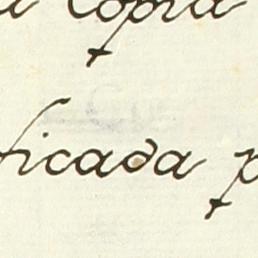 a copia
ficada p